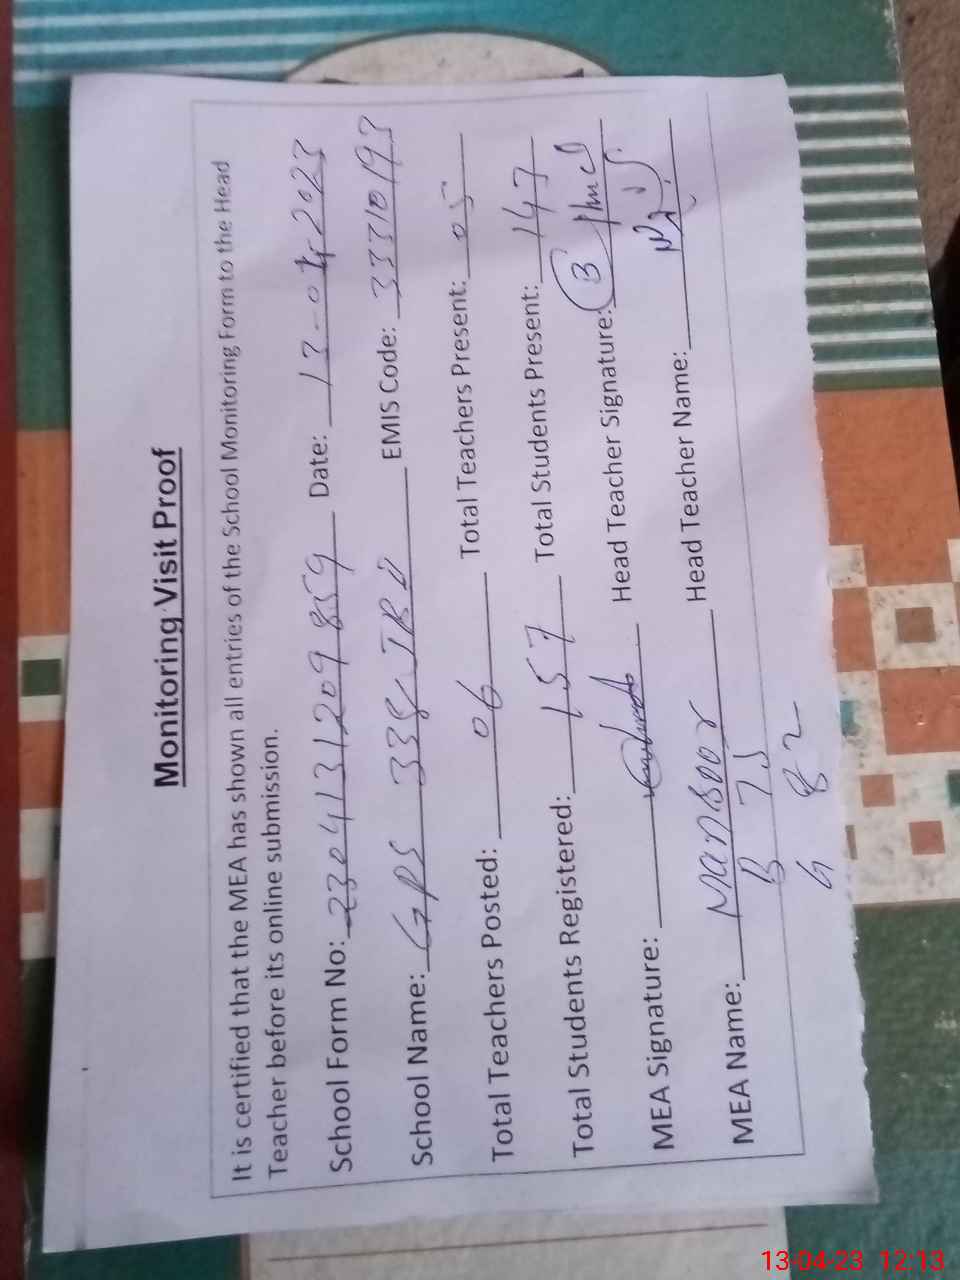 Monitoring Visit Proof
It is certified that the MEA has shown all entries of the School Monitoring Form to the Head
Teacher before its online submission.
School Form No: 2304131209859 Date: 13-04-2023
School Name: GPS 335 TDA EMIS Code: 33310193
Total Teachers Posted: 06 Total Teachers Present: 05
Total Students Registered: 157 Total Students Present: 147
MEA Signature: Head Teacher Signature:
MEA Name: Mansoor Head Teacher Name:
B 75
G 82
13-04-23 12:13